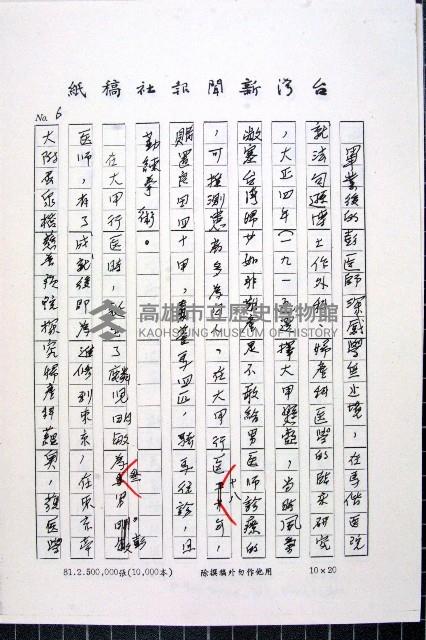 台灣新聞報社稿紙
No. 6
畢業後的彭醫師深感學無止境,在馬偕医院
就法
博士作外科、婦產科医學的臨床研究
,大正四年(一九一五)選擇大甲懸壺,當時風氣
閉塞台灣婦女如非難產是不敢給男医師診療的
,可推測患者多為男人,在大甲行医十八年,
購置良田四十甲,養馬四匹,騎馬往診,且
勤練拳術。
在大甲行医時,
了麟兒明敏為
男明敏。彭
医師,有了成就後即為進修到東京,在東京帝
大附屬泉橋慈善病院探究婦產科蘊奧,獲医學
高雄市立歷史博物館
KAOHSIUNG MUSEUM OF HISTORY
81.2.500,000張(10,000本)
除撰稿外勿作他用
10×20